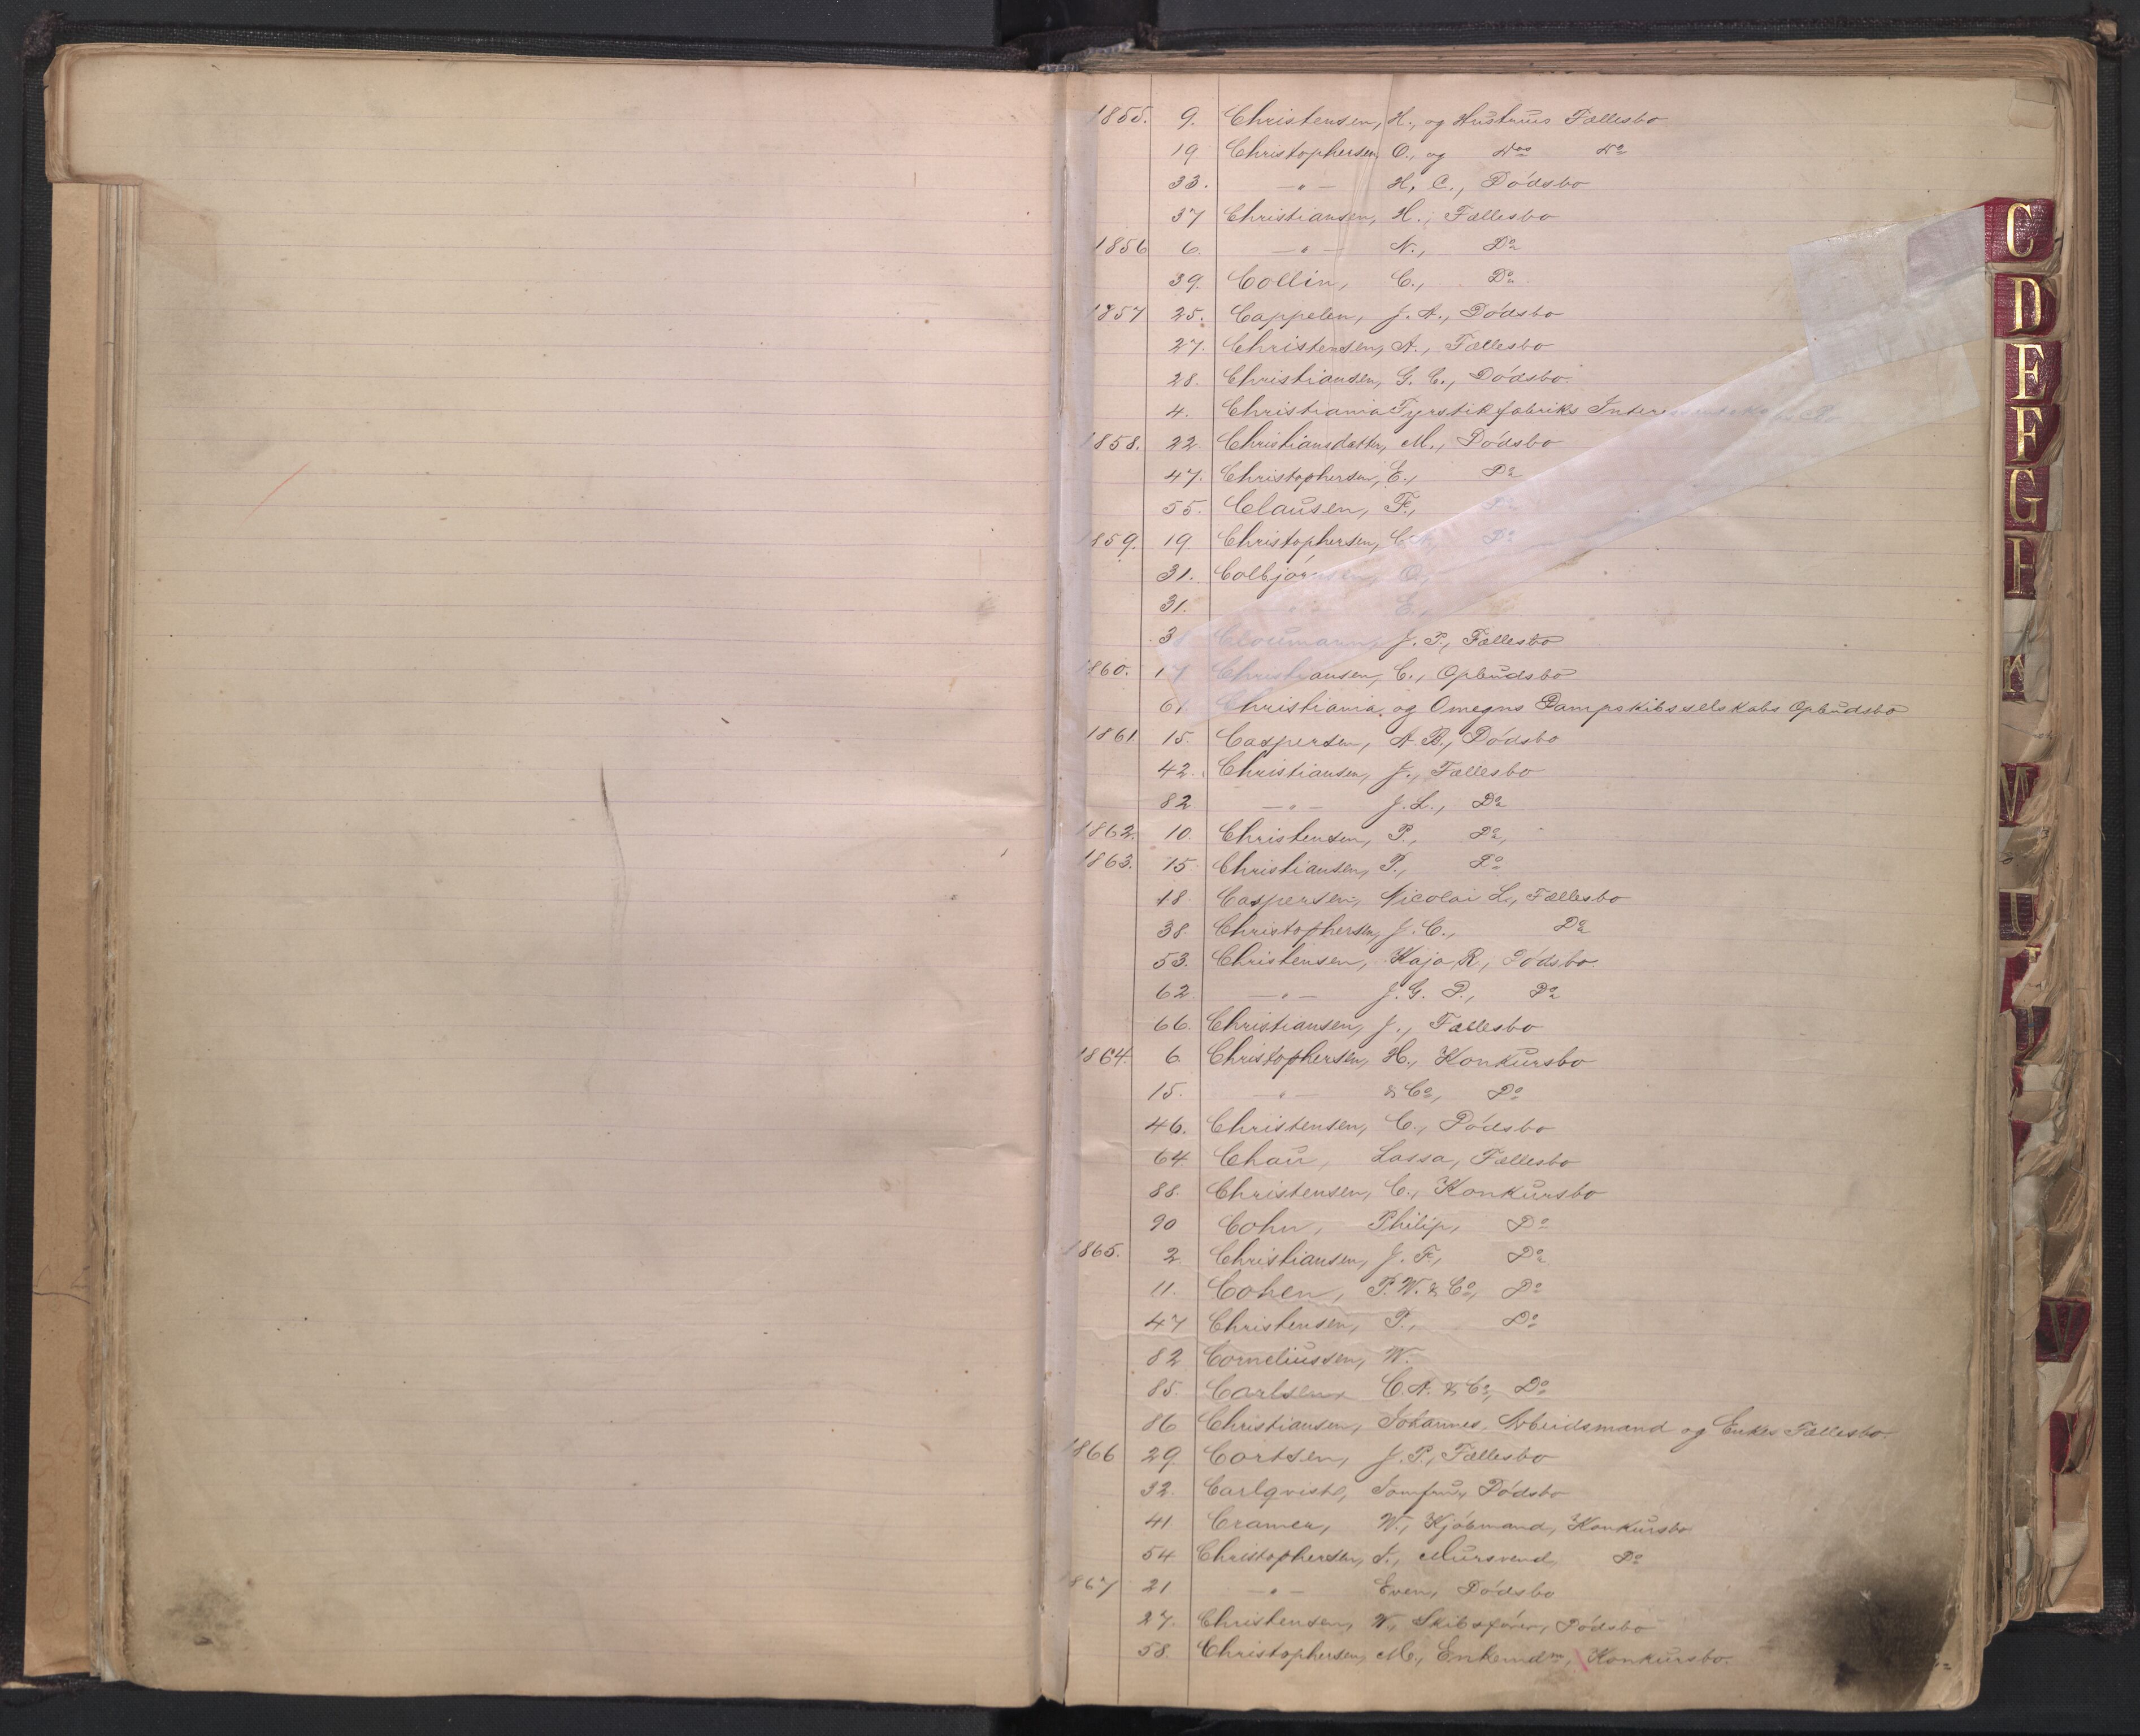 1855. 9. Christensen, H., og Hustrues Fællesbo
19 Christophersen, O., og Dos Do
33. —„— H. C., Dødsbo
37 Christiansen, H., Fællesbo
1856 6. —„— N., Do
39. Collin, C., Do
1857 25. Cappelen, J. A., Dødsbo
27. Christensen, A., Fællesbo
28. Christiansen, G. C., Dødsbo.
4. Christiania Fyrstikfabriks
1858. 22. Christiansdatter, M., Dødsbo
47. Christophersen, E., Do
55. Clausen, F.,
1859. 19 Christophersen, Do
31. Colbjørnsen, O.,
31. E.,
J. P., Fællesbo
1860. 17 Christiansen, C., Opbudsbo
61 Christiania og Omegns Dampskibsselskabs Opbudsbo
1861 15. Caspersen, A. B., Dødsbo
42. Christiansen, J., Fællesbo
82 —„— J. L., Do
1862. 10. Christensen, P., Do
1863. 15 Christiansen, P., Do
18. Caspersen, Nicolai L., Fællesbo
38. Christophersen, J. C., Do
53. Christensen, Kaja R., Dødsbo.
62 —„— J. G. P., Do
66. Christiansen, J., Fællesbo
1864. 6. Christophersen, H., Konkursbo
15. —„— & Co, Do
46. Christensen, C., Dødsbo
64. Chau, Lassa, Fællesbo
88. Christensen, C., Konkursbo
90 Cohn, Philip, Do
1865. 2. Christiansen, J. F., Do
11. Cohen, P. W. & Co, Do
47 Christensen, P., Do
82 Corneliussen, W.
85. Carlsen, C. A. & Co, Do
86 Christiansen, Johannes, Arbeidsmand og Enkes Fællesbo
1866 29 Cortsen, J. P., Fællesbo
32. Carlqvist, Jomfru, Dødsbo
41. Cramer, W., Kjøbmand, Konkursbo
54. Christophersen, Mursvend, Do
1867 21 —„— Even, Dødsbo
27. Christensen, W., Skibsfører, Dødsbo
58. Christophersen, M., Enkemdm, Konkursbo.
C
D
E
F
G
H
K
M
U
V